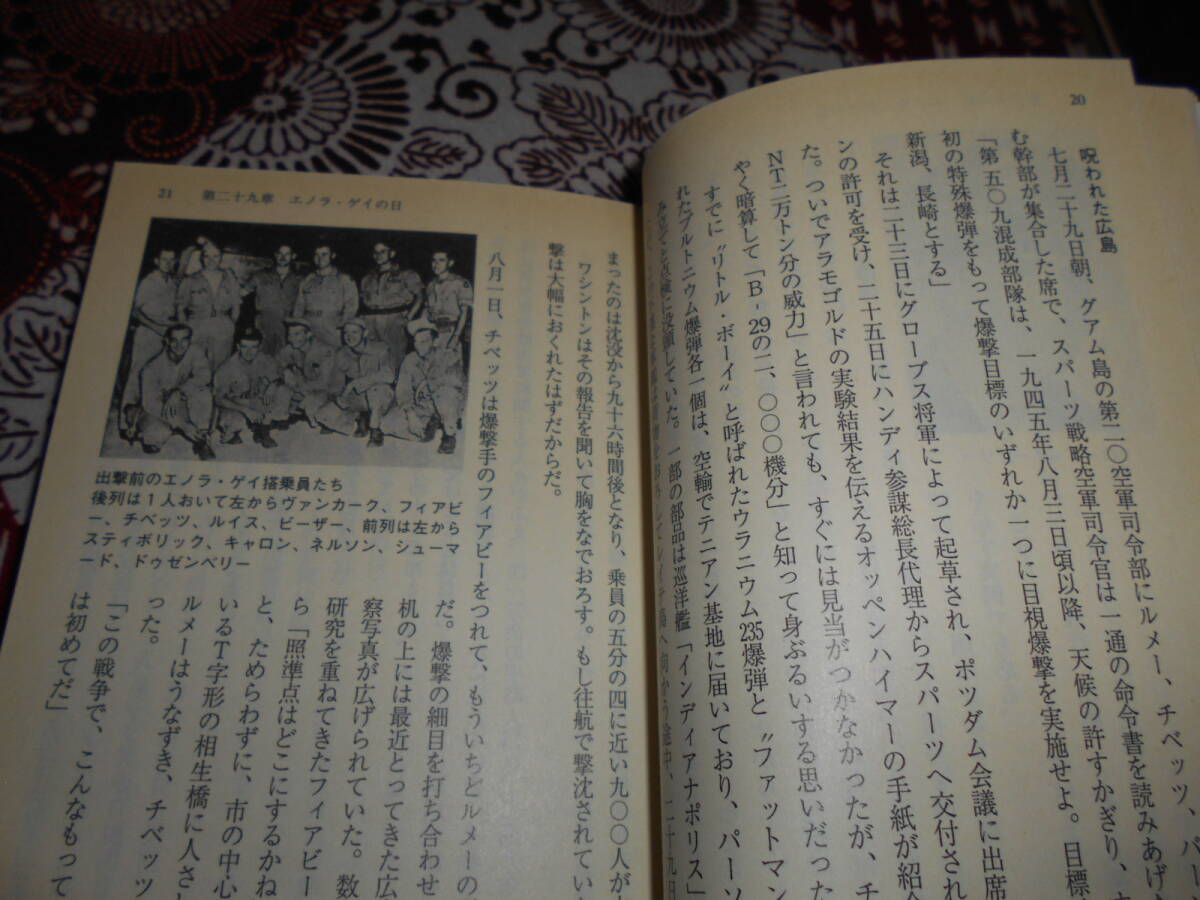 20
呪われた広島
七月二十九日朝、グアム島の第二〇空軍司令部にルメー、チベッツ、パー
む幹部が集合した席で、スパーツ戦略空軍司令官は一通の命令書を読みあげ
「第五〇九混成部隊は、一九四五年八月三日頃以降、天候の許すかぎり、
初の特殊爆弾をもって爆撃目標のいずれか一つに目視爆撃を実施せよ。目標
新潟、長崎とする」
それは二十三日にグローブス将軍によって起草され、ポツダム会議に出席
ンの許可を受け、二十五日にハンディ参謀総長代理からスパーツへ交付され
た。ついでアラモゴルドの実験結果を伝えるオッペンハイマーの手紙が紹介
NT二万トン分の威力」と言われても、すぐには見当がつかなかったが、チ
やく暗算して「B-29の二、〇〇〇機分」と知って身ぶるいする思いだった
すでに〝リトル・ボーイ〟と呼ばれたウラニウム235爆弾と〝ファットマン
れたプルトニウム爆弾各一個は、空輸でテニアン基地に届いており、パーソ
み立てと点検に没頭していた。一部の部品は巡洋艦「インディアナポリス」
21 第二十九章 エノラ・ゲイの日
まったのは沈没から九十六時間後となり、乗員の五分の四に近い九〇〇人が
ワシントンはその報告を聞いて胸をなでおろす。もし往航で撃沈されてい
撃は大幅におくれたはずだからだ。
八月一日、チベッツは爆撃手のフィアビーをつれて、もういちどルメーの
だ。爆撃の細目を打ち合わせ
机の上には最近とってきた広
察写真が広げられていた。数
研究を重ねてきたフィアビー
ら「照準点はどこにするかね
と、ためらわずに、市の中心
いるT字形の相生橋に人さ
ルメーはうなずき、チベッツ
った。
「この戦争で、こんなもって
は初めてだ」
出撃前のエノラ・ゲイ搭乗員たち
後列は1人おいて左からヴァンカーク、フィアビ
ー、チベッツ、ルイス、ビーザー、前列は左から
スティボリック、キャロン、ネルソン、シューマ
ード、ドゥゼンベリー